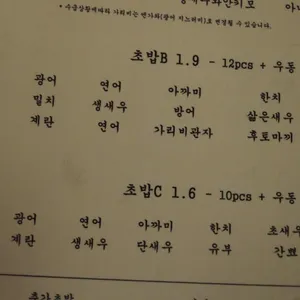 * 수급상황에따라 가리비는 엔가와(광어 지느러미)로 변경될 수 있습니다.
초밥B 1.9 - 12pcs + 우동
광어 연어 아까미 한치
밀치 생새우 방어 삶은새우
계란 연어 가리비관자 후토마끼
초밥C 1.6 - 10pcs + 우동
광어 연어 아까미 한치 초새우
계란 생새우 단새우 유부 간뾰
추가초밥